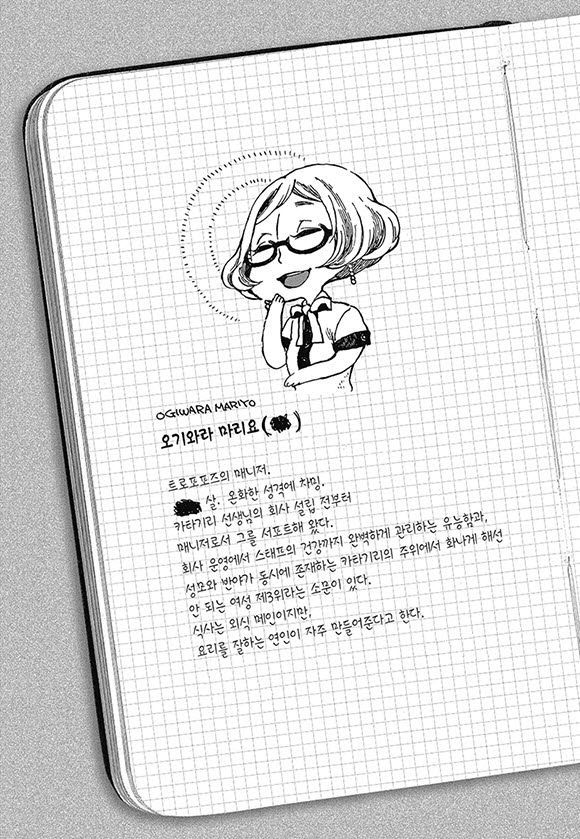 OGIWARA MARIYO
오기와라 마리요 ( )
트로포포즈의 매니저.
살. 온화한 성격에 차밍.
카타기리 선생님의 회사 설립 전부터
매니저로서 그를 서포트해 왔다.
회사 운영에서 스태프의 건강까지 완벽하게 관리하는 유능함과,
성모와 반야가 동시에 존재하는 카타기리의 주위에서 화나게 해선
안 되는 여성 제3위라는 소문이 있다.
식사는 외식 메인이지만,
요리를 잘하는 연인이 자주 만들어준다고 한다.